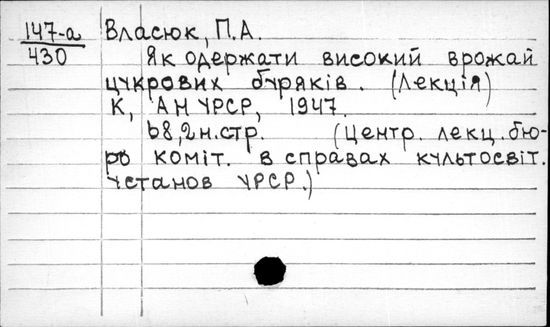 147-а Власюк, П.А.
430
Як одержати високий врожай
цукрових буряків. (Лекція)
К, АН УРСР, 1947.
68,2н.стр. (Центр. лекц. бю-
ро коміт. в справах культосвіт.
установ УРСР.)